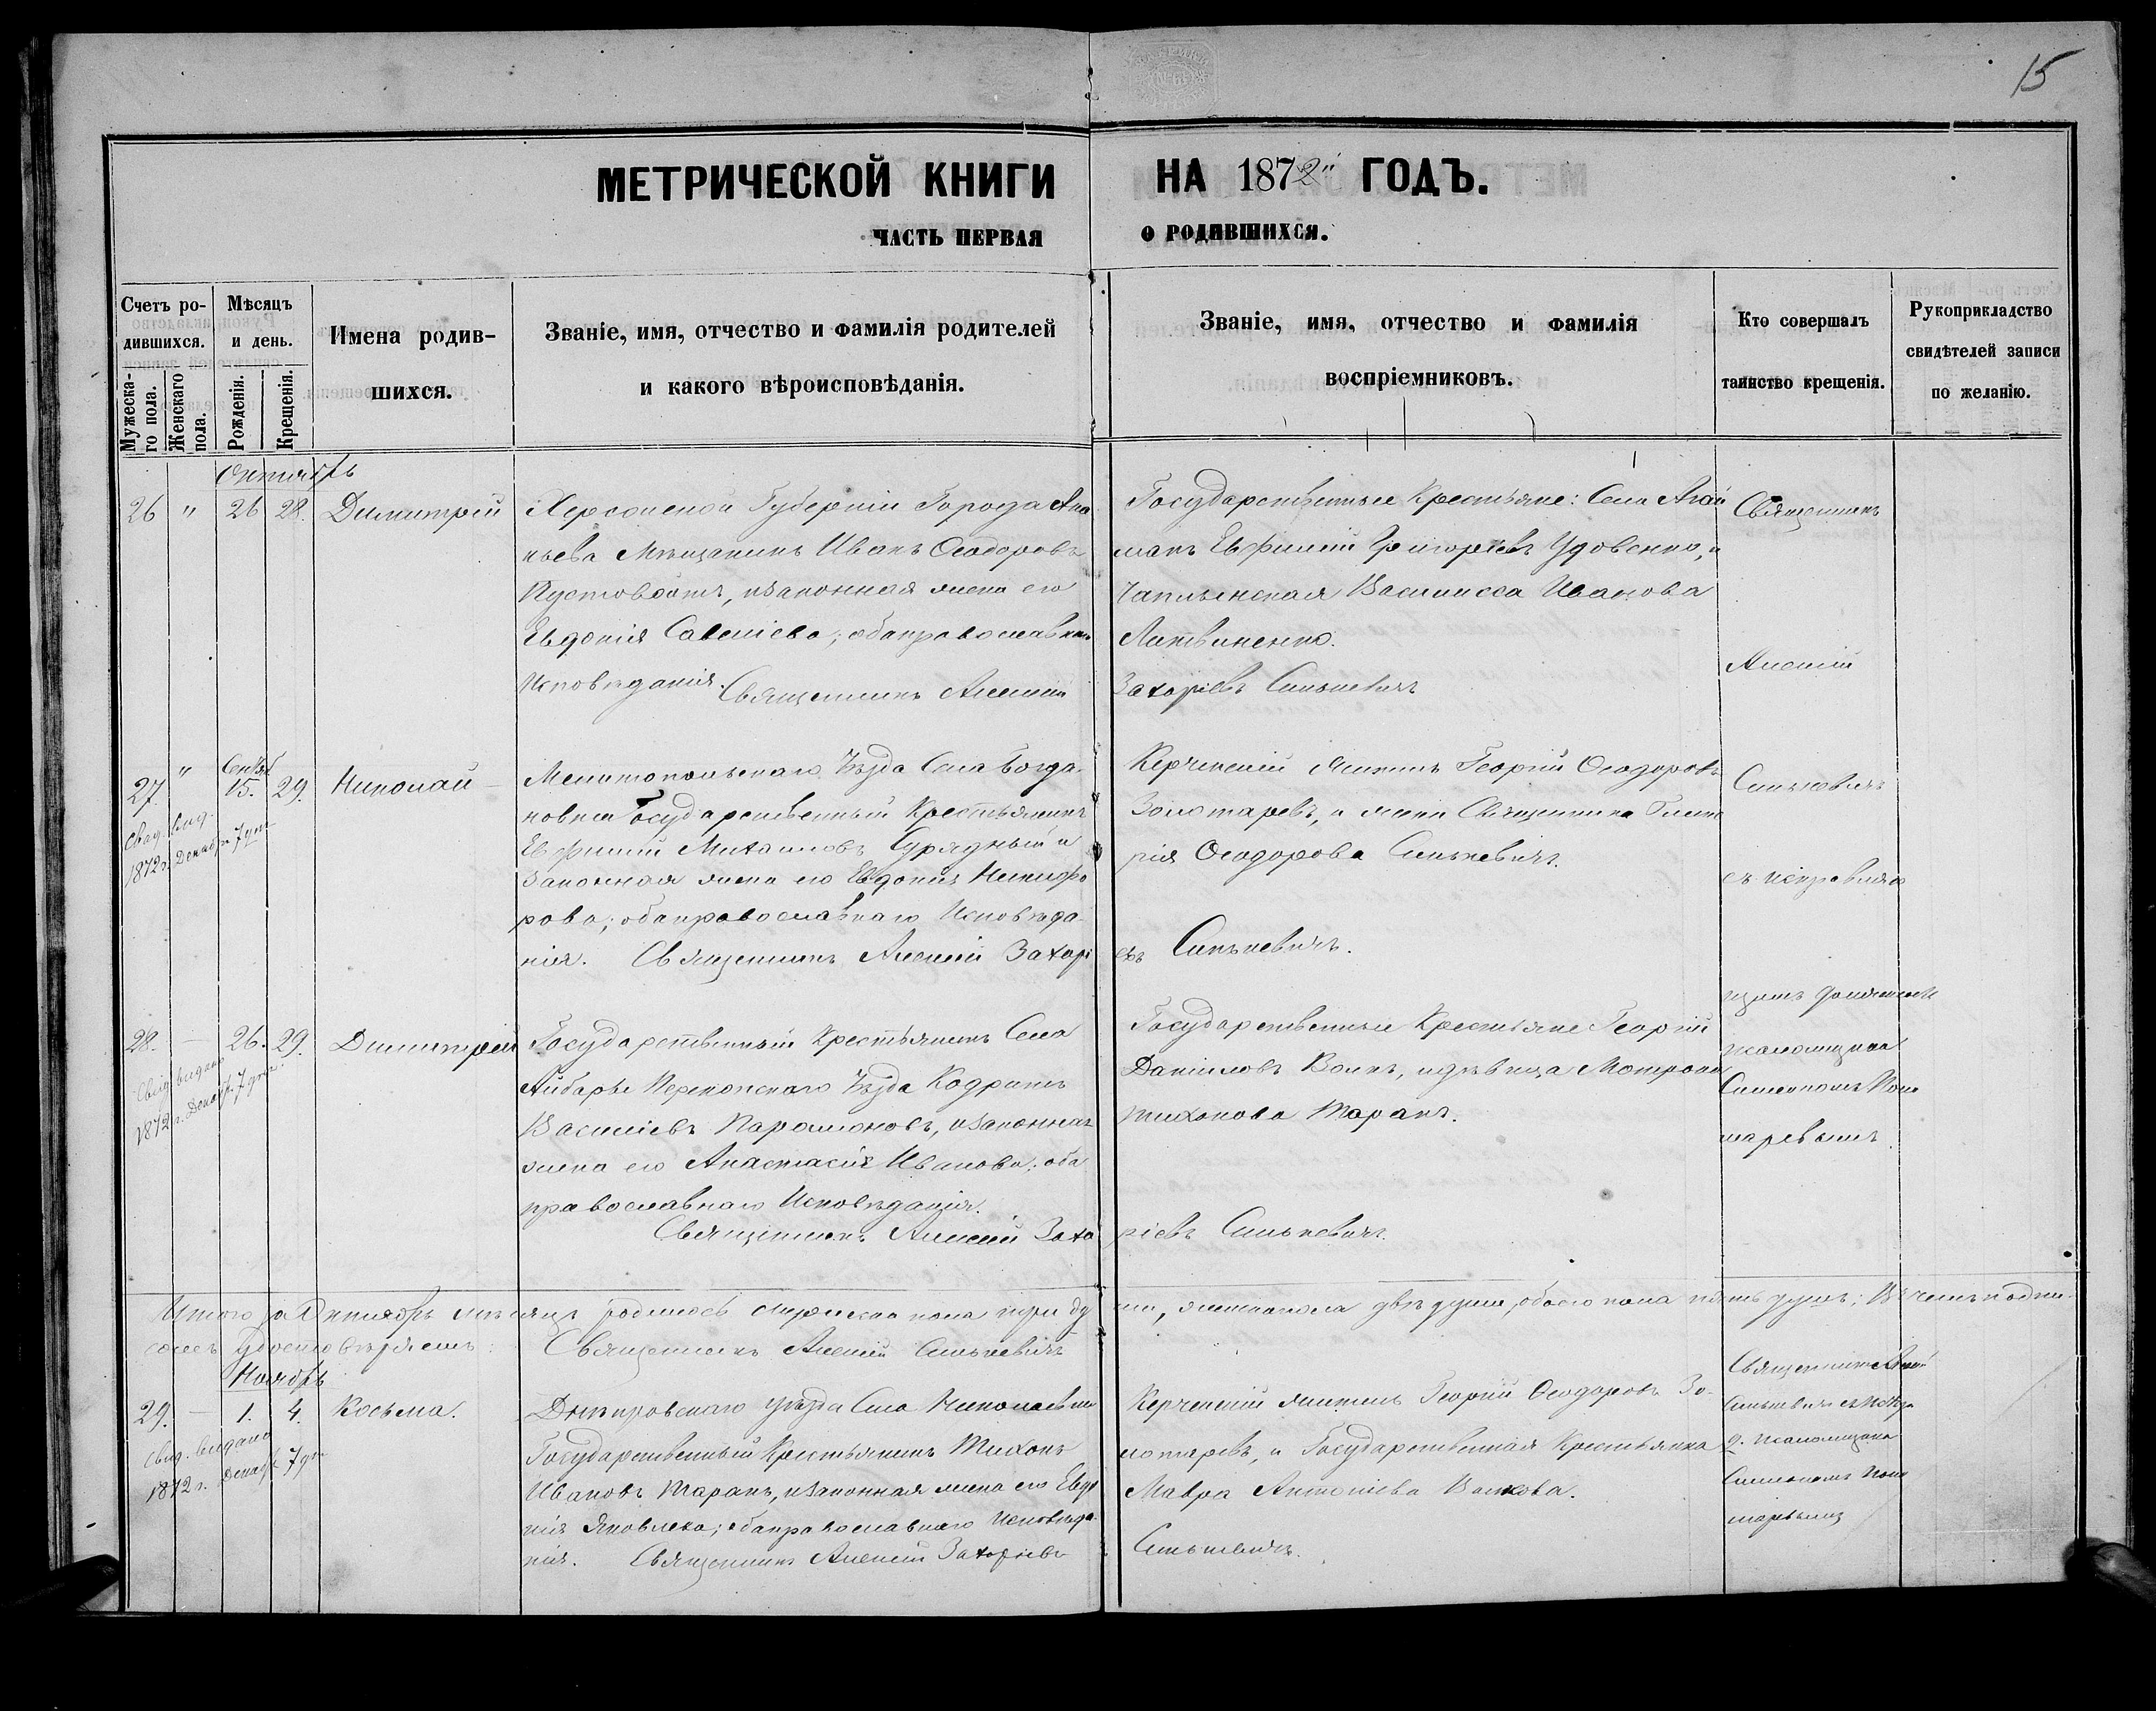 15
МЕТРИЧЕСКОЙ КНИГИ НА 1872й ГОДЪ.
ЧАСТЬ ПЕРВАЯ О РОДИВШИХСЯ.
Счетъ ро-
дившихся.
Мужеска-
го пола.
Женскаго
пола.
Мѣсяцъ
и день.
Рожденія.
Крещенія.
Имена родив-
шихся.
Званіе, имя, отчество и фамилія родителей
и какого вѣроисповѣданія.
Званіе, имя, отчество и фамилія
воспріемниковъ.
Кто совершалъ
таинство крещенія.
Рукоприкладство
свидѣтелей записи
по желанію.
Октябрь
26 " 26 28. Димитрій
Херсонской Губерніи Города Ана
ньева Мѣщанинъ Иванъ Ѳеодоровъ
Пустовойтъ, и законная жена его
Евдокія Савеліева; оба православнаго
Исповѣданія. Священникъ Алексій
Государственные Крестьяне: Села Агай
манъ Евфимій Григоріевъ Удовенко, и
Чаплынская Василисса Иванова
Литвиненко.
Захаріевъ Синькевичъ
Священникъ
Алексій
27. " Сентяб. 15. 29. Николай
Свид. выд.
1872 г. Декабр. 7 дня
Мелитопольскаго Уѣзда Села Богда-
новки Государственный Крестьянинъ
Евфимій Михаиловъ и
Законная жена его Евдокія Никифо
рова; оба православнаго Исповѣда-
нія. Священникъ Алексій Захарі
Керченскій Житель Георгій Ѳеодоровъ
Золотаревъ, и жена Священника Глике
рія Ѳеодорова Синькевичъ.
евъ Синькевичъ.
Синькевичъ
съ исправляю
28. — 26. 29. Димитрій
Свид. выдано
1872 г. Декабр. 7 дня.
Государственный Крестьянинъ Села
Айбары Перекопскаго Уѣзда Кодратъ
Василіевъ Парамоновъ, и законная
жена его Анастасія Иванова; оба
православнаго Исповѣданія.
Священникъ Алексій Заха
Государственные Крестьяне Георгій
Даніиловъ Волкъ, и дѣвица Мотрона
Тихонова Таранъ.
ріевъ Синькевичъ.
щимъ должность
псаломщика
Симеономъ Поно
маревымъ.
Итого за Октябрь мѣсяцъ родилось мужеска пола три ду
ши, женска пола двѣ души, обоего пола пять душъ; В чемъ подпи-
сомъ удостовѣряемъ: Священникъ Алексій Синькевичъ
Ноябрь
29. — 1. 4. Косьма.
Свид. выдано
1872 г. Декабр. 7 дня
Днѣпровскаго уѣзда Села Николаевки
Государственный Крестьянинъ Тихонъ
Ивановъ Таранъ, и законная жена его Евдо
кія Яковлева; оба православнаго Исповѣда-
нія. Священникъ Алексій Захаріевъ
Керченскій житель Георгій Ѳеодоровъ Зо-
лотаревъ, и Государственная Крестьянка
Мавра Антоніева Волкова.
Синькевичъ.
Священникъ Алексій
Синькевичъ
д. псаломщика
Симеономъ Поно
маревымъ